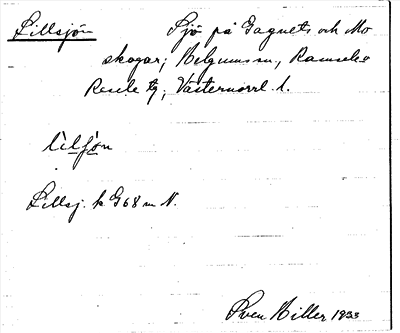 Lillsjön Sjö på Gagnets och Mo
skogar; Helgums sn, Ramsele o
Resele tg, Västernorrl. l.
lìlʃø̀n
Lillsj. k G68 m N.
Sven Hiller 1933